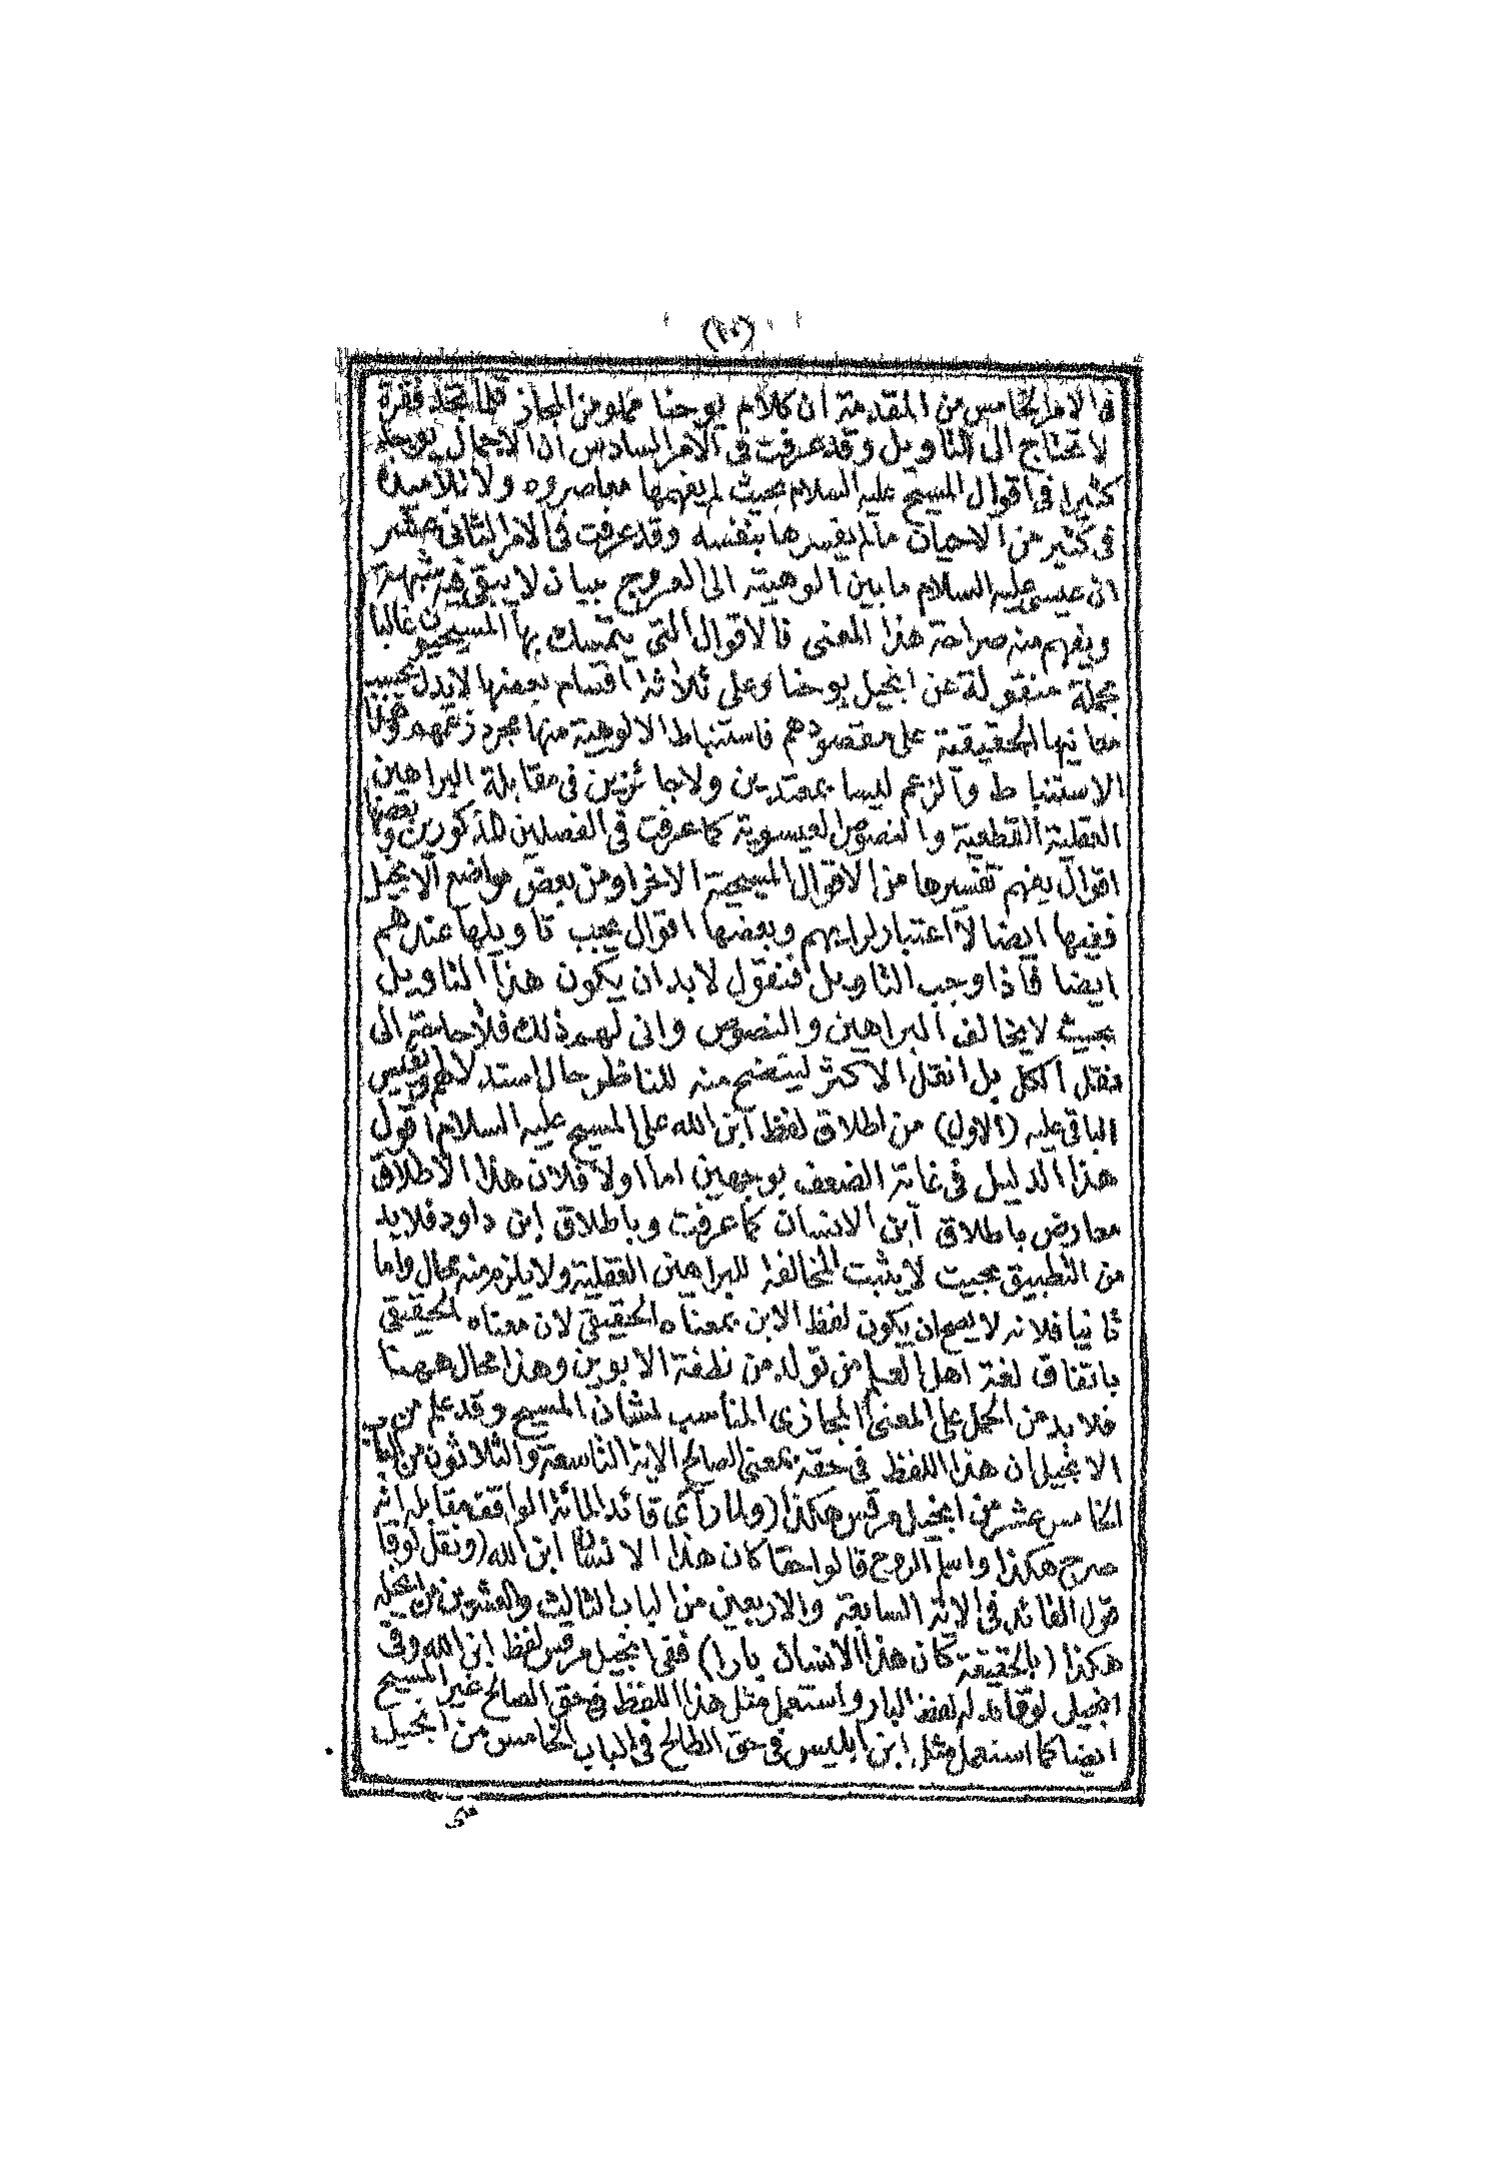 (٢٠)
فى الامر الخامس من المقدمة ان كلام يوحنا مملو من المجاز قلما تجد فقرة
لا تحتاج الى التاويل وقد عرفت فى الامر السادس ان الاجمال يوجد
كثيرا فى اقوال المسيح عليه السلام بحيث لم يفهمها معاصروه ولا تلاميذه
فى كثير من الاحيان ما لم يفسرها بنفسه وقد عرفت فى الامر الثانى عشر
ان عيسى عليه السلام ما بين الوهيته الى العروج ببيان لا يبقى فيه شبهة
ويفهم منه صراحة هذا المعنى فالاقوال التى يتمسك بها المسيحيون غالبا
مجملة منقولة عن انجيل يوحنا وعلى ثلاثة اقسام بعضها لا يدل بحسب
معانيها الحقيقية على مقصودهم فاستنباط الالوهية منها مجرد زعمهم وهذا
الاستنباط والزعم ليسا بمعتدين ولا جائزين فى مقابلة البراهين
العقلية القطعية والنصوص العيسوية كما عرفت فى الفصلين المذكورين وبعضها
اقوال يفهم تفسيرها من الاقوال المسيحية الاخر او من بعض مواضع الانجيل
ففيها ايضا لا اعتبار لرايهم وبعضها اقوال يجب تاويلها عندهم
ايضا فاذا وجب التاويل فنقول لا بد ان يكون هذا التاويل
بحيث لا يخالف البراهين والنصوص وانى لهم ذلك فلا حاجة الى
نقل الكل بل انقل الاكثر ليتضح منه للناظر حال استدلالهم ويقيس
الباقى عليه (الاول) من اطلاق لفظ ابن الله على المسيح عليه السلام اقول
هذا الدليل فى غاية الضعف بوجهين اما اولا فلان هذا الاطلاق
معارض باطلاق ابن الانسان كما عرفت وباطلاق ابن داود فلا بد
من التطبيق بحيث لا يثبت المخالفة للبراهين العقلية ولا يلزم منه محال واما
ثانيا فلانه لا يصح ان يكون لفظ الابن بمعناه الحقيقى لان معناه الحقيقى
باتفاق لغة اهل العلم من تولد من نطفة الابوين وهذا محال ههنا
فلا بد من الحمل على المعنى المجازى المناسب لشان المسيح وقد علم من
الانجيل ان هذا اللفظ فى حقه بمعنى الصالح الاية التاسعة والثلاثون من الباب
الخامس عشر من انجيل مرقس هكذا (ولما رآى قائد المائة الواقف مقابله انه
صرخ هكذا واسلم الروح قال حقا كان هذا الانسان ابن الله (ونقل لوقا
قول القائد فى الاية السابعة والاربعين من الباب الثالث والعشرين من انجيله
هكذا (بالحقيقة كان هذا الانسان بارا) ففى انجيل مرقس لفظ ابن الله وفى
انجيل لوقا بدله لفظ البار واستعمل مثل هذا اللفظ فى حق الصالح غير المسيح
ايضا كما استعمل مثل ابن ابليس فى حق الطالح فى الباب الخامس من انجيل
متى